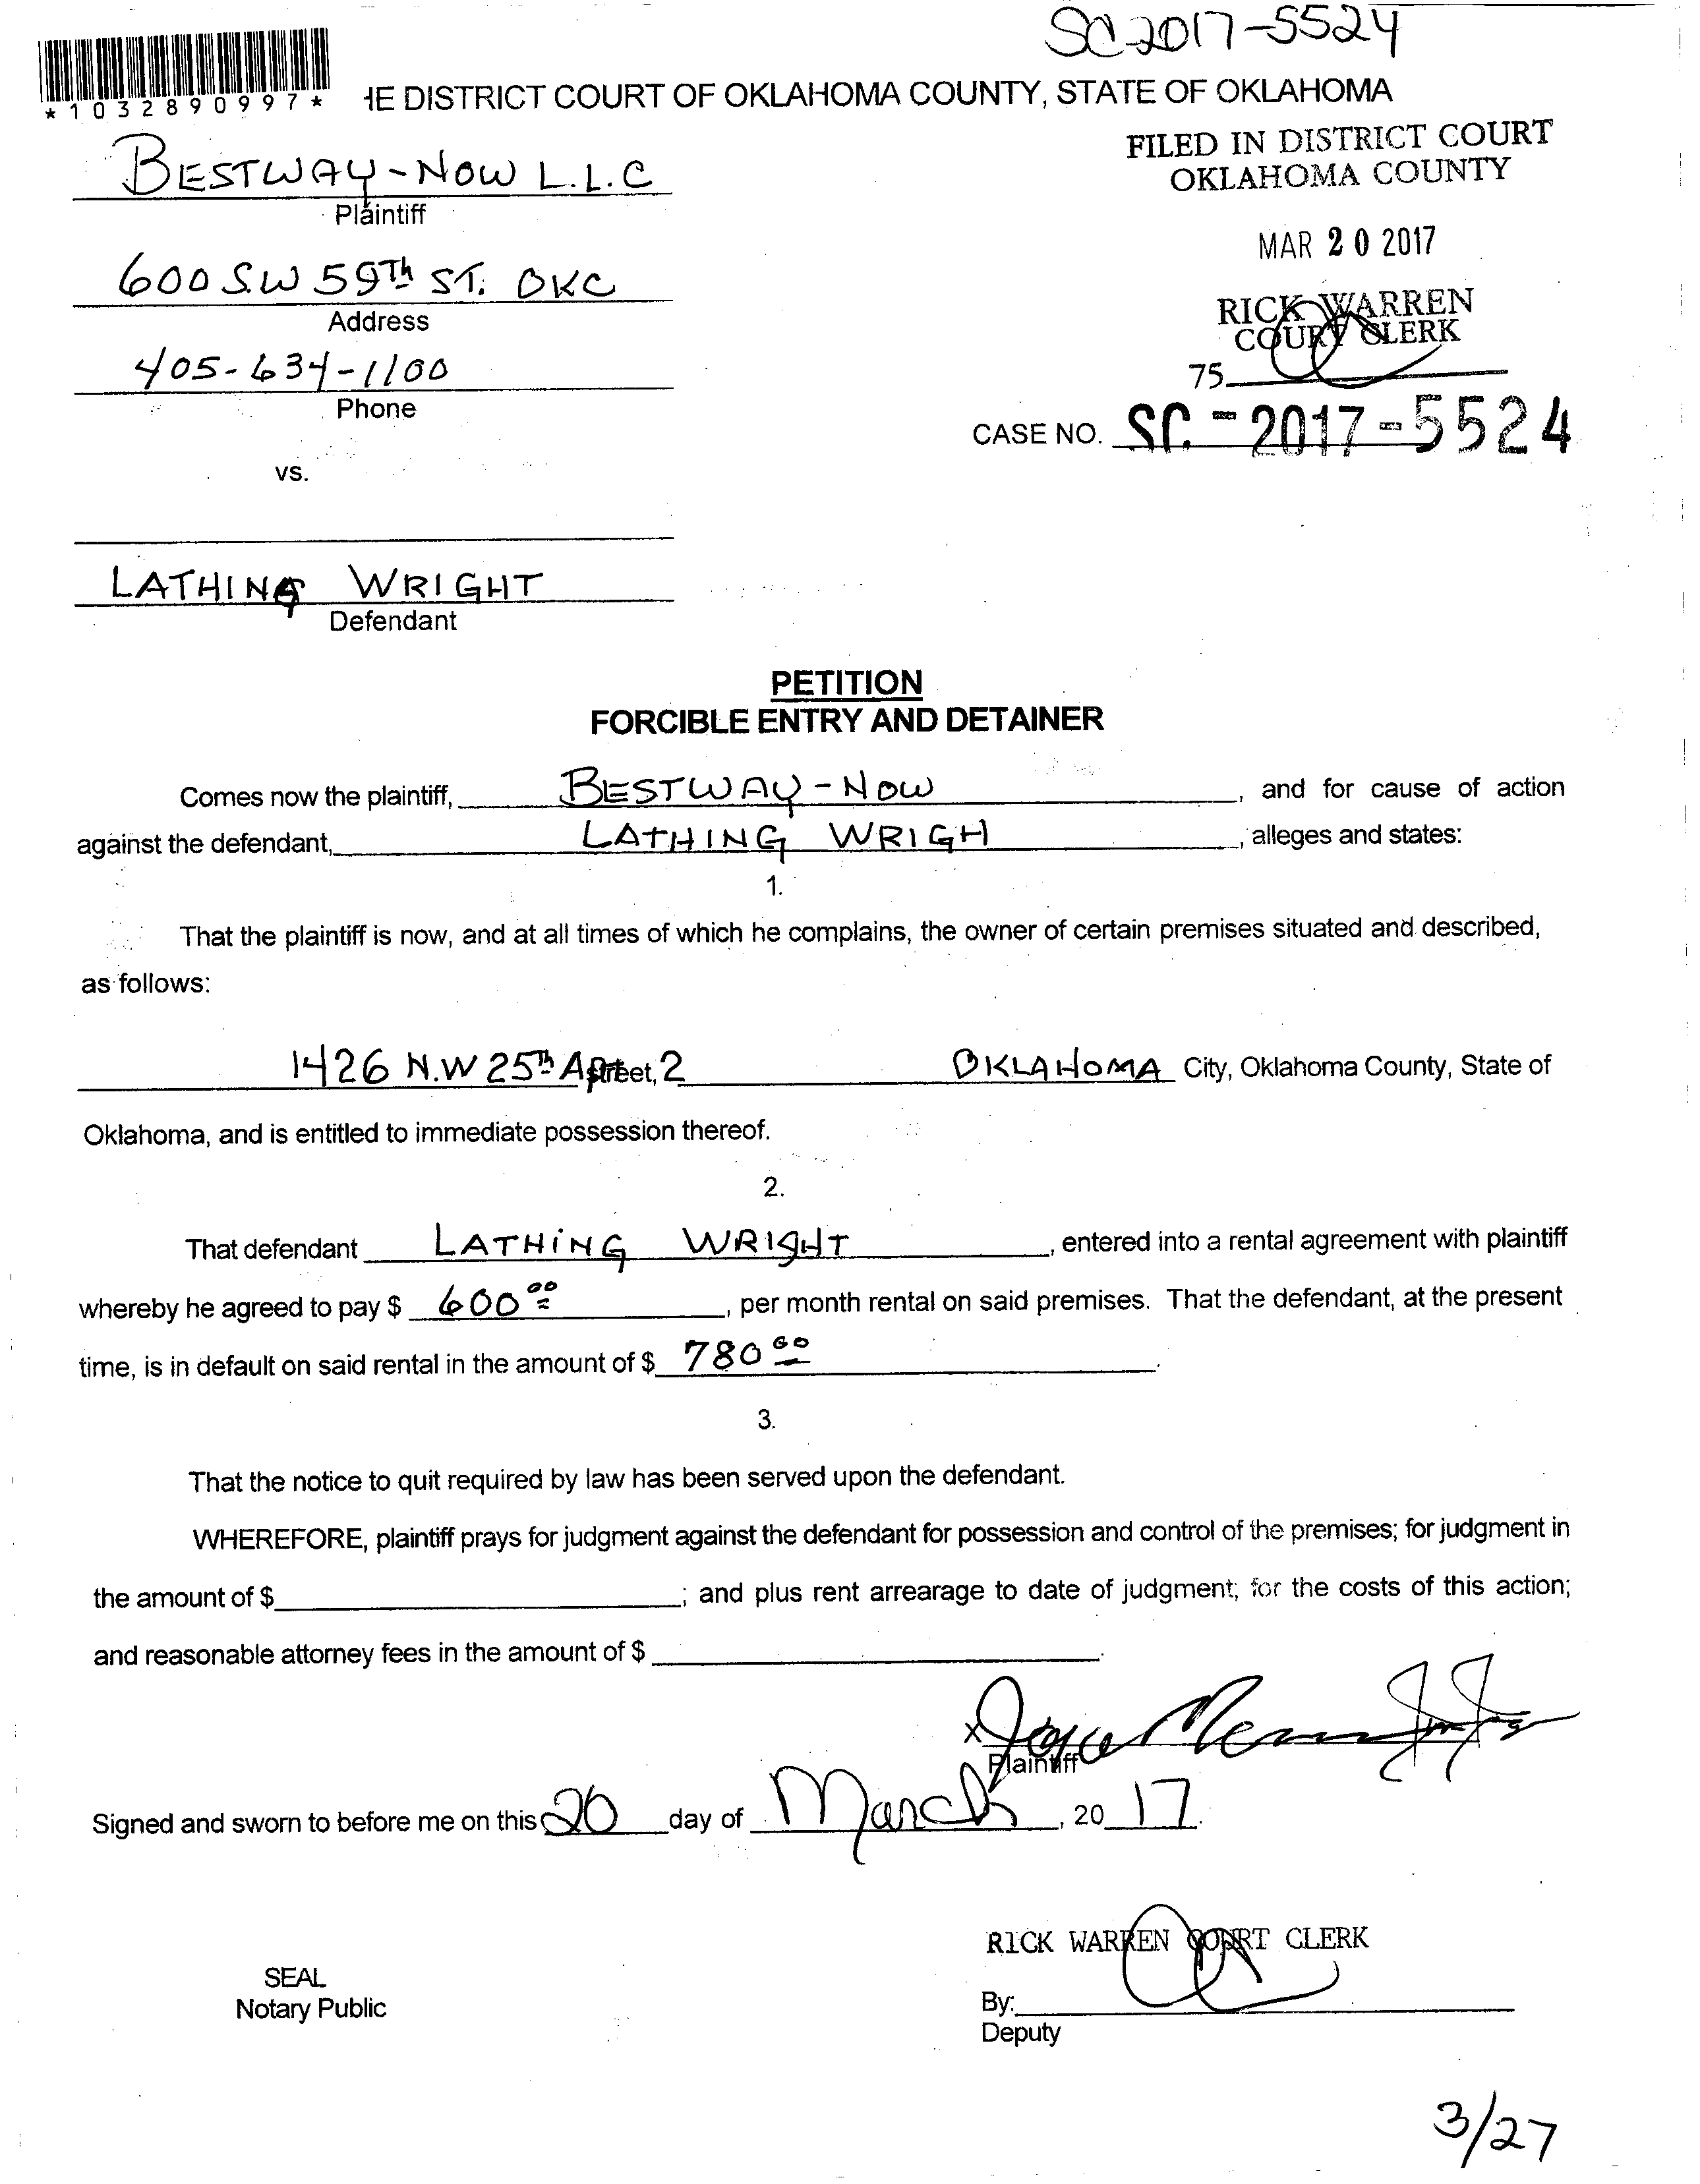 SC-2017-5524
*1032890997*
HE DISTRICT COURT OF OKLAHOMA COUNTY, STATE OF OKLAHOMA
FILED IN DISTRICT COURT
OKLAHOMA COUNTY
BESTWAY-NOW L.L.C
Plaintiff
MAR 20 2017
600 S.W 59Th ST. OKC
Address
RICK WARREN
COURT CLERK
405-634-1100
Phone
75
CASE NO. SC - 2017 - 5524
vs.
LATHING WRIGHT
Defendant
PETITION
FORCIBLE ENTRY AND DETAINER
Comes now the plaintiff, BESTWAY-NOW, and for cause of action
against the defendant, LATHING WRIGH, alleges and states:
1.
That the plaintiff is now, and at all times of which he complains, the owner of certain premises situated and described,
as follows:
1426 N.W 25Th Apt street, 2 OKLAHOMA City, Oklahoma County, State of
Oklahoma, and is entitled to immediate possession thereof.
2.
That defendant LATHiNG WRIGHT, entered into a rental agreement with plaintiff
whereby he agreed to pay $ 600 00, per month rental on said premises. That the defendant, at the present
time, is in default on said rental in the amount of $ 780 00.
3.
That the notice to quit required by law has been served upon the defendant.
WHEREFORE, plaintiff prays for judgment against the defendant for possession and control of the premises; for judgment in
the amount of $; and plus rent arrearage to date of judgment; for the costs of this action;
and reasonable attorney fees in the amount of $.
X
Plaintiff
Signed and sworn to before me on this 20 day of March, 20 17.
RICK WARREN COURT CLERK
SEAL
Notary Public
By:
Deputy
3/27